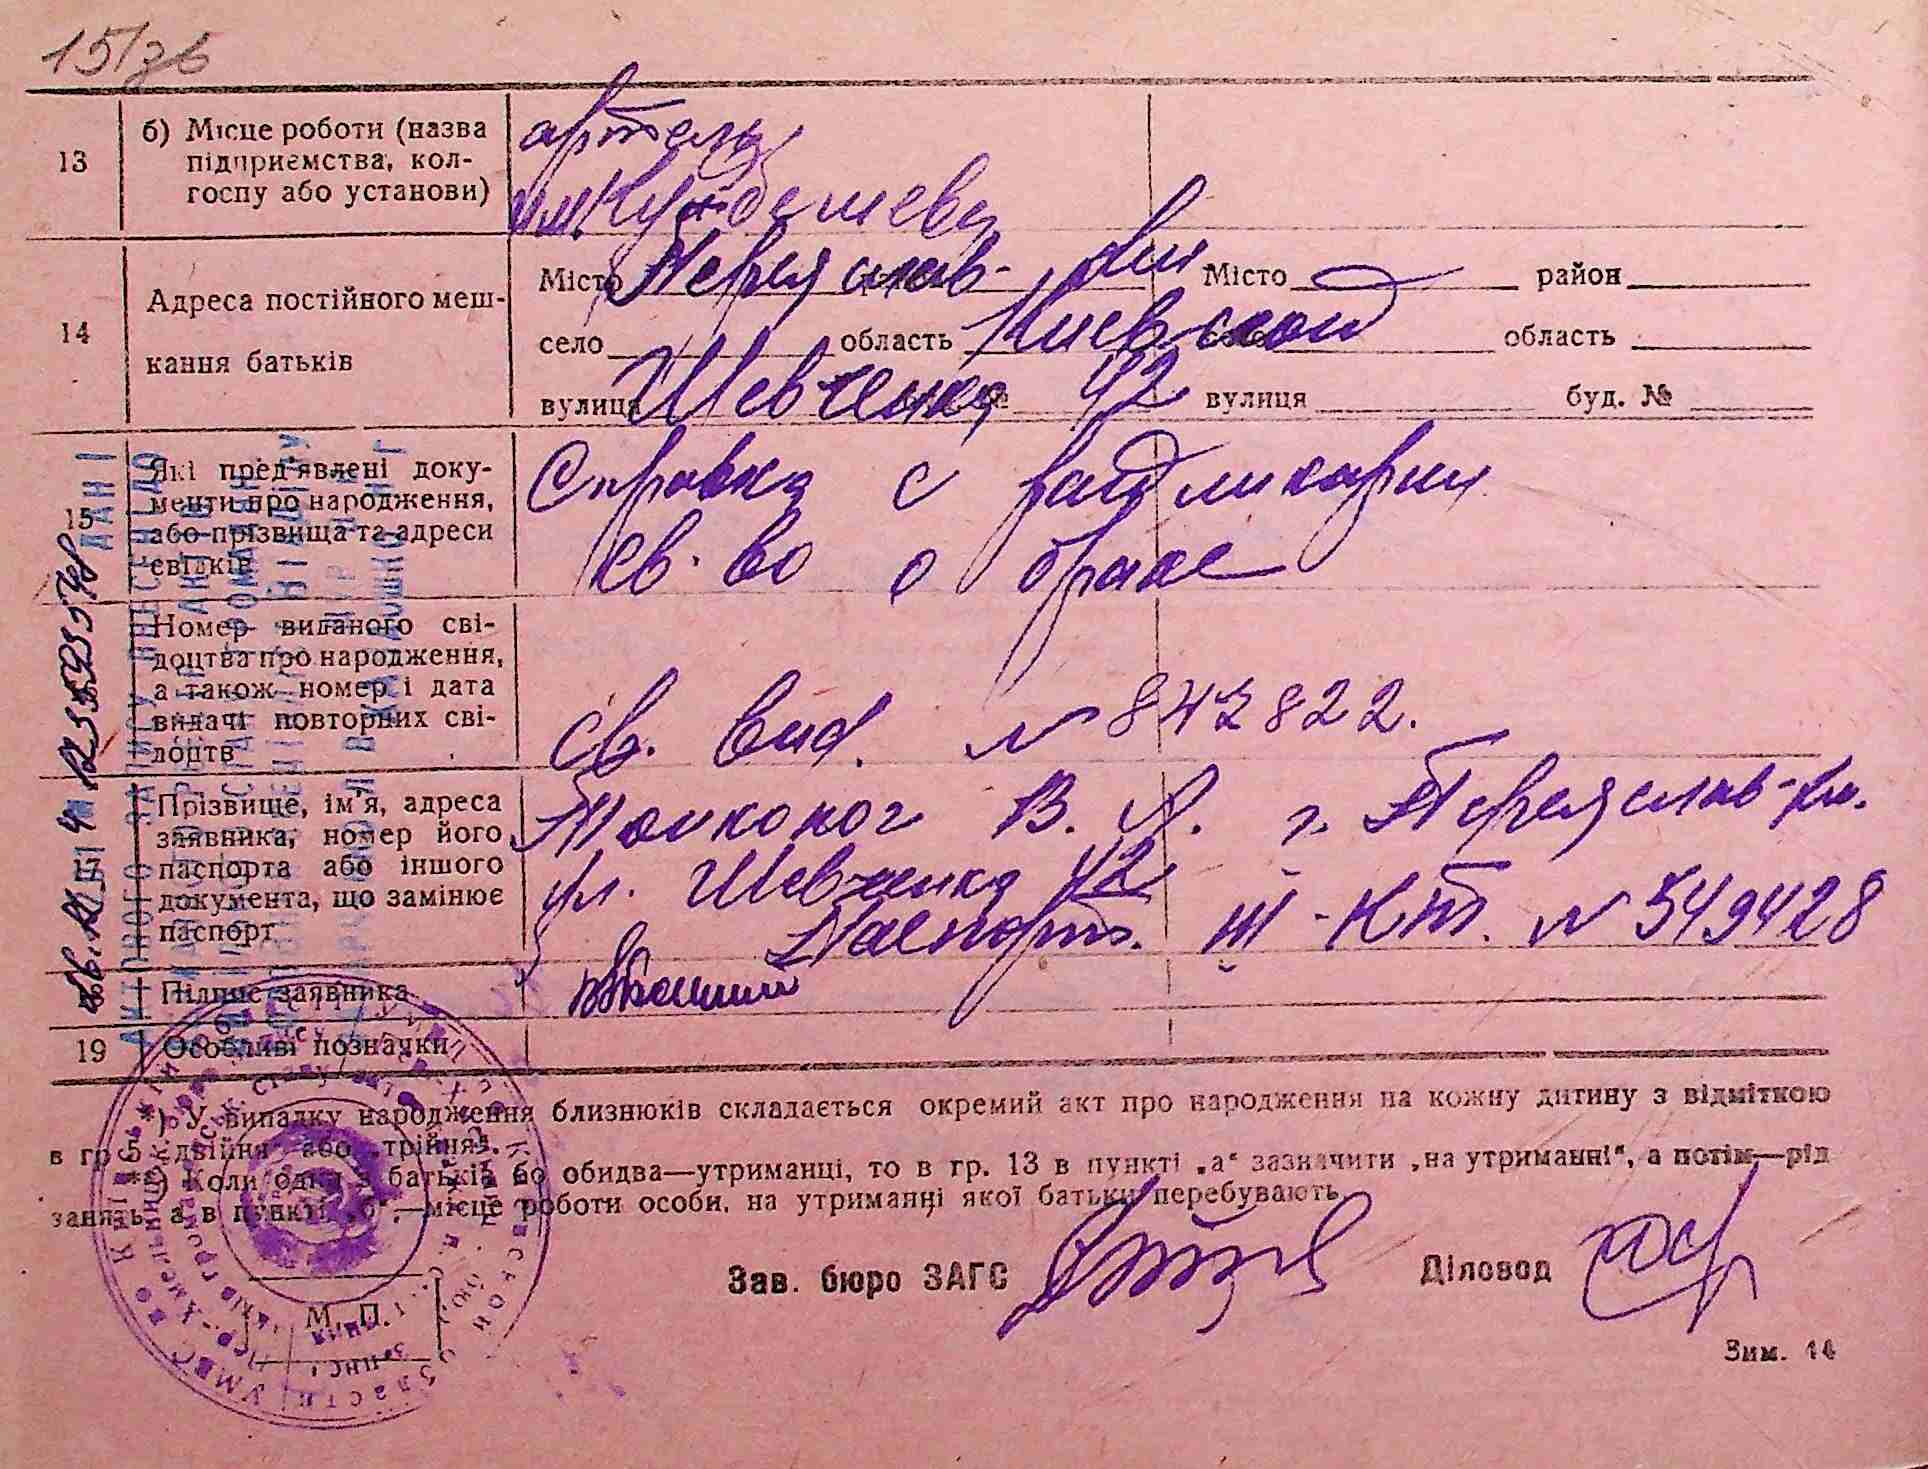 13 б) Місце роботи (назва
підприємства, кол-
госпу або установи)
артель
им. Куйбешева
14 Адреса постійного меш-
кання батьків
Місто Переяслав- Хм Місто район
село область Киевской область
вулиця Шевченка 42 вулиця буд. №
15 Які пред'явлені доку-
менти про народження,
або прізвища та адреси
свідків
Справка с райликарни
св. во о браке
Номер виданого сві-
доцтва про народження,
а також номер і дата
видачі повторних сві-
доцтв
св. вид. N 843822.
17 Прізвище, ім'я, адреса
заявника, номер його
паспорта або іншого
документа, що замінює
паспорт
В. Я. г. Переяслав-Хм.
ул. Шевченка 42
Паспорт. N 549428
Підпис заявника
19 Особливі позначки
*) У випадку народження близнюків складається окремий акт про народження на кожну дитину з відміткою
в гр. 5 „двійня“ або „трійня“.
**) Коли один з батьків або обидва—утриманці, то в гр. 13 в пункті „а“ зазначити „на утриманні“, а потім—рід
занять, а в пункті „б“,—місце роботи особи, на утриманні якої батьки перебувають.
Зав. бюро ЗАГС Діловод
М. П.
Зим. 14